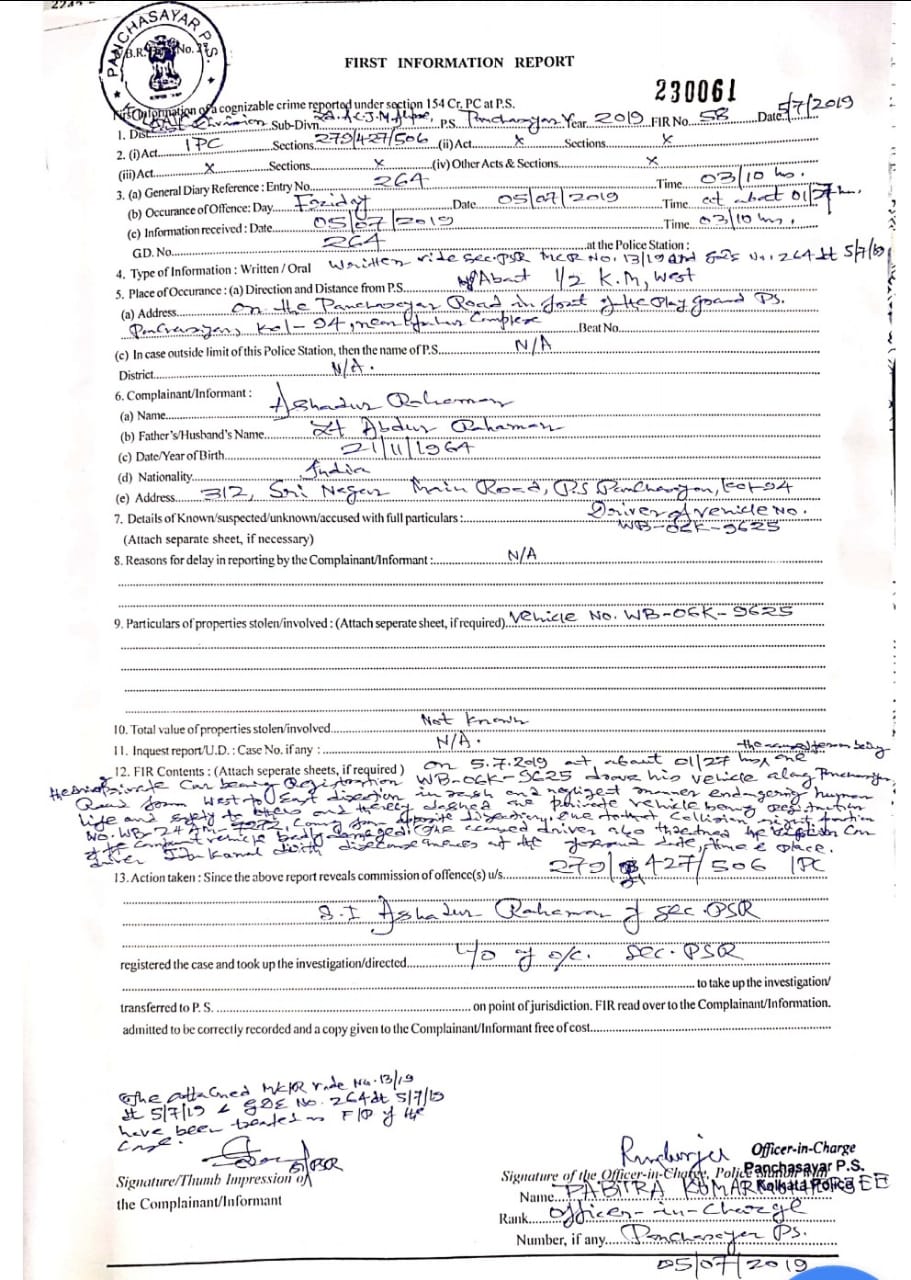 PANCHASAYAR P.S.
FIRST INFORMATION REPORT
230061
First Information of a cognizable crime reported under section 154 Cr. PC at P.S.
1. Dist. Division Sub-Divn. P.S. Panchasayar Year 2019 FIR No. 58 Date 5/7/2019
2. (i) Act IPC Sections 279/427/506 (ii) Act X Sections X
(iii) Act X Sections X (iv) Other Acts & Sections X
3. (a) General Diary Reference : Entry No. 264 Time 03/10 hrs.
(b) Occurance of Offence: Day Friday Date 05/07/2019 Time at about 01/27 hrs.
(c) Information received : Date 05/07/2019 Time 03/10 hrs.
GD. No. 264 at the Police Station :
4. Type of Information : Written / Oral Written vide Sec. PSR No. 13/19 and GDE No. 264 dt 5/7/19
5. Place of Occurance : (a) Direction and Distance from P.S. About 1/2 K.M, West
(a) Address On the Panchasayar Road in front of the Play ground PS.
Panchasayar, Kol-94, near Complex Beat No.
(c) In case outside limit of this Police Station, then the name of P.S. N/A
District N/A.
6. Complainant/Informant :
(a) Name Ashadur Rahaman
(b) Father's/Husband's Name Lt Abdur Rahaman
(c) Date/Year of Birth 21/11/1964
(d) Nationality India
(e) Address 312, Sri Nagar Main Road, P.S Panchasayar, Kol-94
7. Details of Known/suspected/unknown/accused with full particulars : Driver of vehicle No.
(Attach separate sheet, if necessary) WB-06K-9625
8. Reasons for delay in reporting by the Complainant/Informant : N/A
9. Particulars of properties stolen/involved : (Attach seperate sheet, if required) Vehicle No. WB-06K-9625
10. Total value of properties stolen/involved Not Known
11. Inquest report/U.D. : Case No. if any : N/A.
the accused person being
12. FIR Contents : (Attach seperate sheets, if required) On 5.7.2019 at about 01/27 hrs one
Private Car bearing Registration WB-06K-9625 drove his vehicle along Panchasayar
Road from West to East direction in rash and negligent manner endangering human
life and safety to others and thereby dashed one private vehicle being registration
No. WB-24 coming from opposite direction, due to that collision right portion
of the complainant vehicle badly damaged. The accused driver also threatened the
driver with at the date, time & place.
13. Action taken : Since the above report reveals commission of offence(s) u/s. 279/427/506 IPC
S.I Ashadur Rahaman of Sec. PSR
registered the case and took up the investigation/directed u/o of o/c. Sec. PSR
to take up the investigation/
transferred to P. S. on point of jurisdiction. FIR read over to the Complainant/Information.
admitted to be correctly recorded and a copy given to the Complainant/Informant free of cost
The attached vide No. 13/19
dt 5/7/19 & GDE No. 264 dt 5/7/19
have been treated as FIR of the
case.
Signature/Thumb Impression of
the Complainant/Informant
Officer-in-Charge
Signature of the Officer-in-Charge, Police Panchasayar P.S.
Kolkata Police
Name PABITRA KUMAR
Rank Officer-in-Charge
Number, if any Panchasayar PS.
05/07/2019